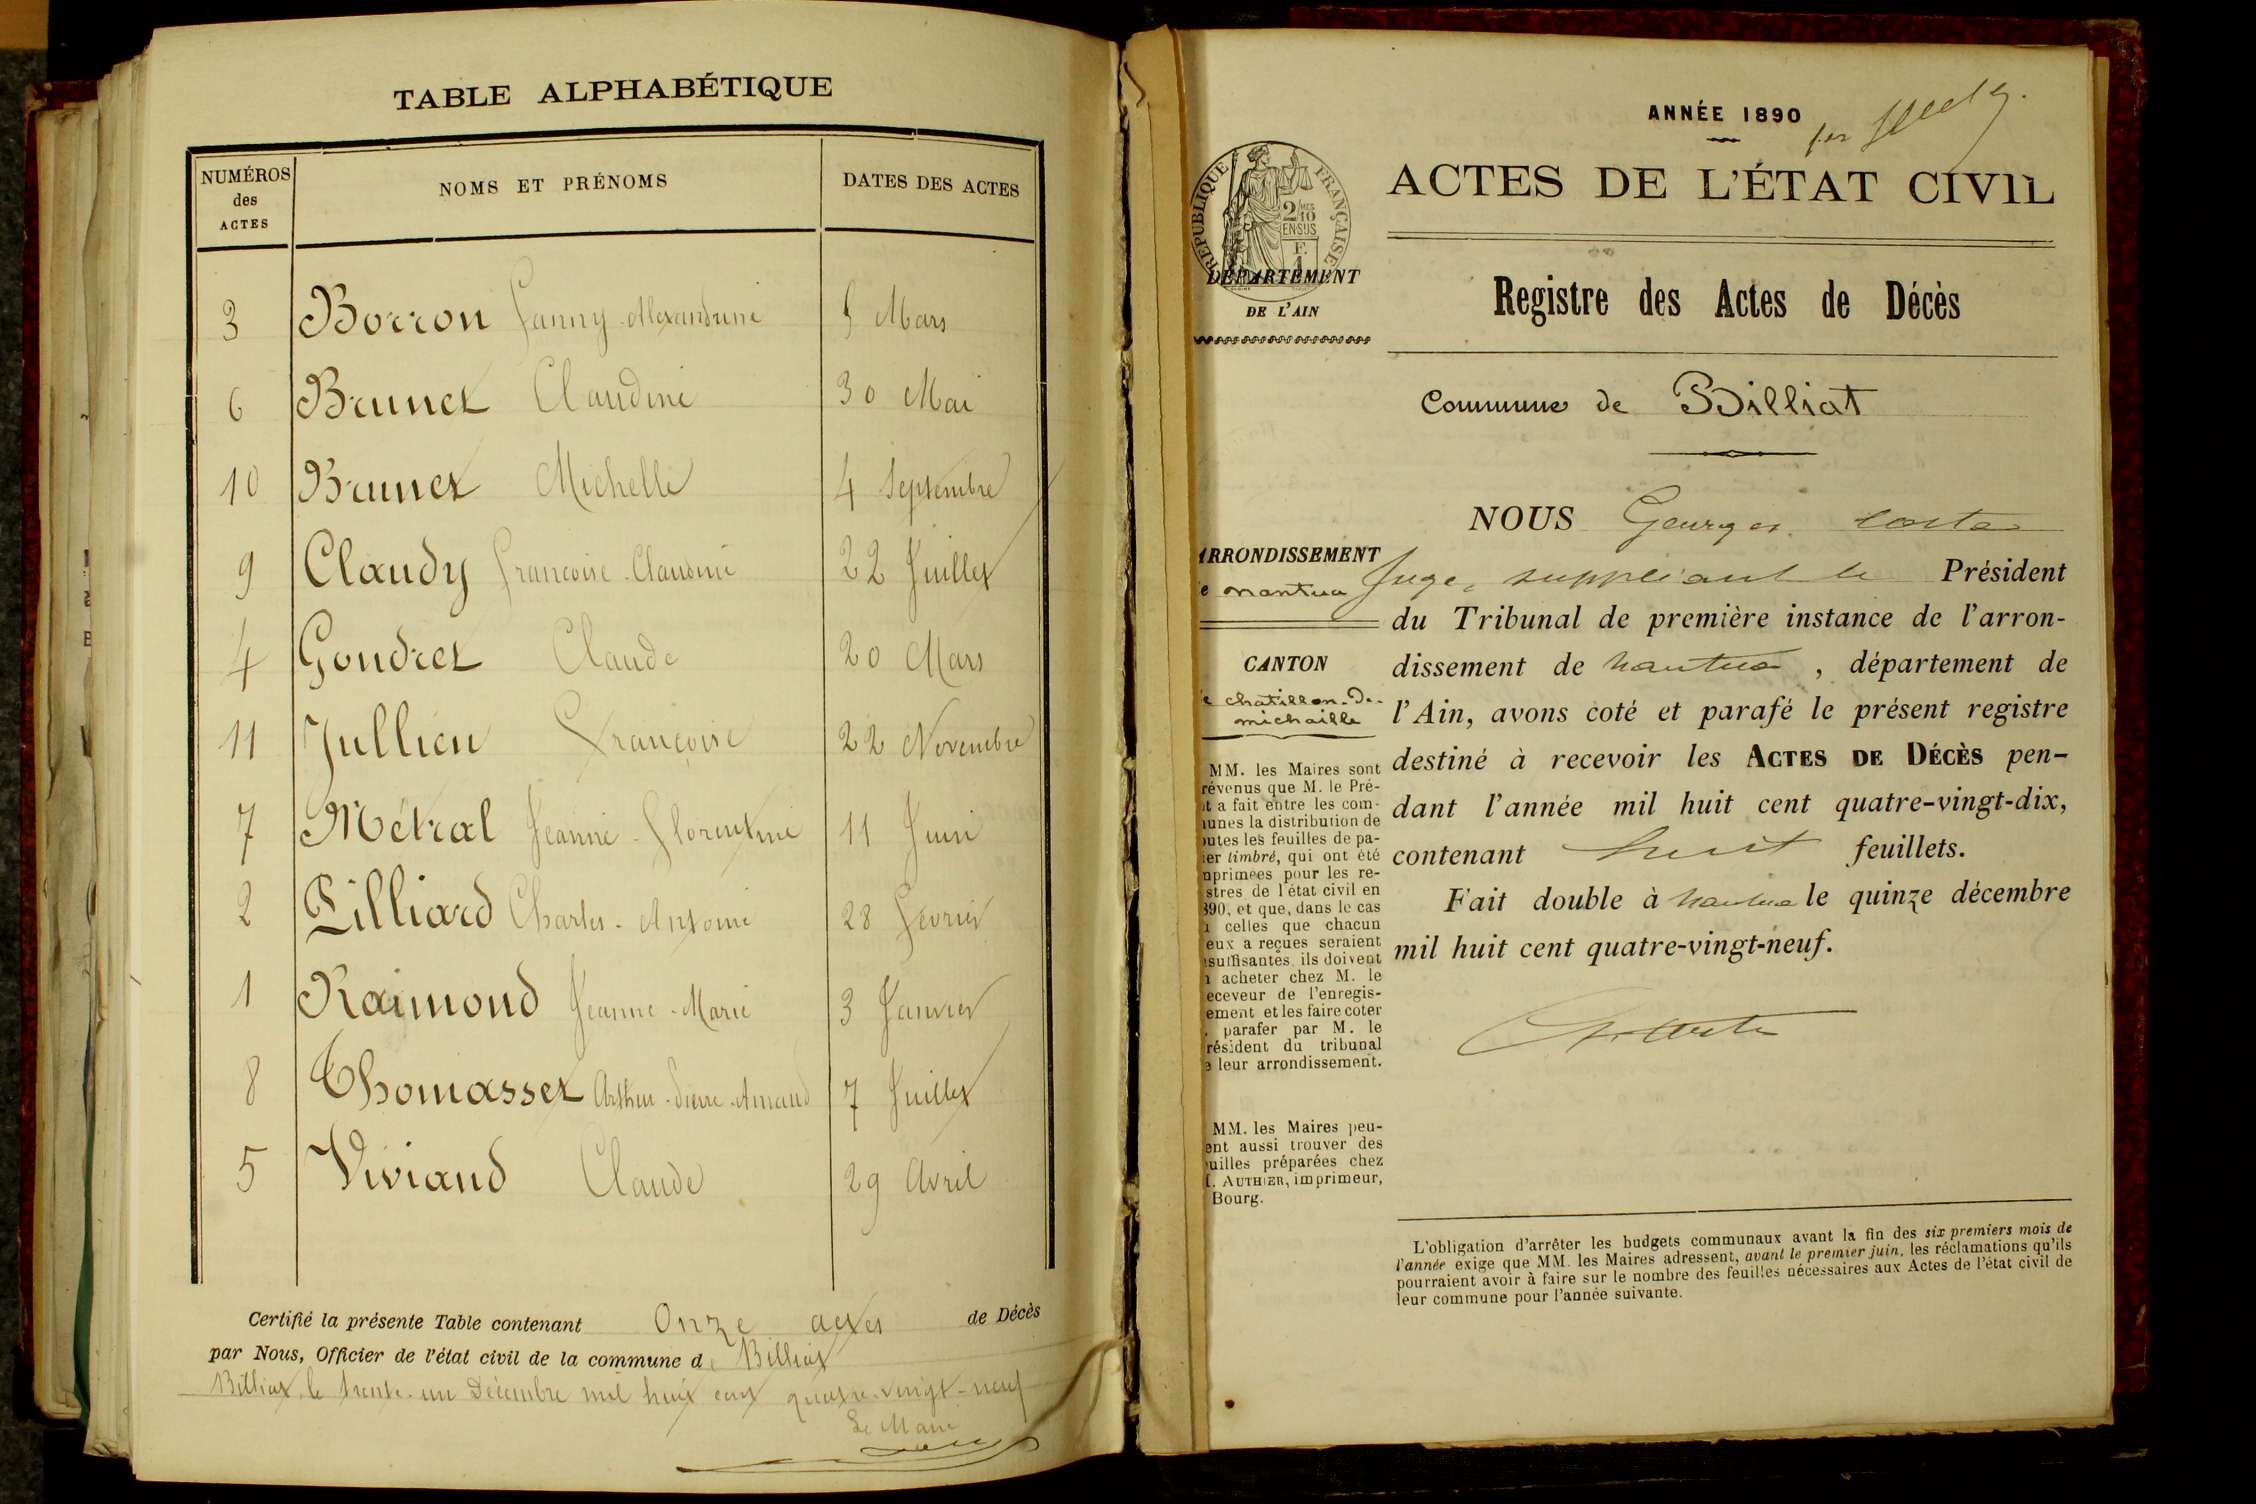 TABLE ALPHABÉTIQUE
NUMÉROS des ACTES
NOMS ET PRÉNOMS
DATES DES ACTES
3 Borron Fanny-Alexandrine 5 Mars
6 Brunet Claudine 30 Mai
10 Brunet Michelle 4 Septembre
9 Claudy Francoise-Claudine 22 Juillet
4 Gondret Claude 20 Mars
11 Jullien Françoise 22 Novembre
7 Métral Jeanne-Florentine 11 Juin
2 Pilliard Charles-Antoine 28 Février
1 Raimond Jeanne-Marie 3 Janvier
8 Thomasset Arthur-Pierre-Amand 7 Juillet
5 Viviand Claude 29 Avril
Certifié la présente Table contenant Onze actes de Décès
par Nous, Officier de l'état civil de la commune de Billiat
Billiat, le trente-un Décembre mil huit cent quatre-vingt-neuf
Le Maire
ANNÉE 1890
ACTES DE L'ÉTAT CIVIL
RÉPUBLIQUE FRANÇAISE
2/10 MES
EN SUS
F.
1
DÉPARTEMENT
DE L'AIN
Registre des Actes de Décès
Commune de Billiat
ARRONDISSEMENT
e nantua
CANTON
e chatillon-de-
michaille
MM. les Maires sont
révenus que M. le Pré-
t a fait entre les com-
unes la distribution de
outes les feuilles de pa-
ier timbré, qui ont été
mprimées pour les re-
stres de l'état civil en
890, et que, dans le cas
celles que chacun
eux a reçues seraient
suffisantes, ils doivent
acheter chez M. le
eceveur de l'enregis-
ement et les faire coter
parafer par M. le
résident du tribunal
e leur arrondissement.
MM. les Maires peu-
ent aussi trouver des
uilles préparées chez
M. AUTHIER, imprimeur,
Bourg.
NOUS Georges Coste
Juge, suppléant le Président
du Tribunal de première instance de l'arron-
dissement de nantua, département de
l'Ain, avons coté et parafé le présent registre
destiné à recevoir les ACTES DE DÉCÈS pen-
dant l'année mil huit cent quatre-vingt-dix,
contenant huit feuillets.
Fait double à nantua le quinze décembre
mil huit cent quatre-vingt-neuf.
L'obligation d'arrêter les budgets communaux avant la fin des six premiers mois de
l'année exige que MM. les Maires adressent, avant le premier juin, les réclamations qu'ils
pourraient avoir à faire sur le nombre des feuilles nécessaires aux Actes de l'état civil de
leur commune pour l'année suivante.